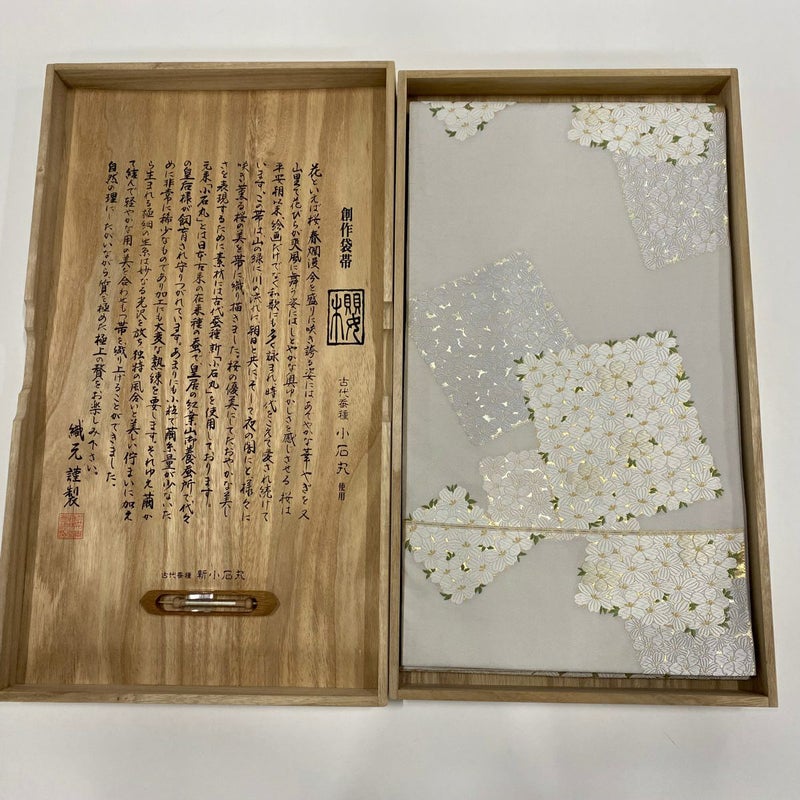 創作袋帯
櫻
古代蚕種 小石丸 使用
花といえば桜、春爛漫、今を盛りに咲き誇る姿にはあでやかな華やぎを、又
山里で花びらが爽風に舞う姿にはしとやかな奥ゆかしさを感じさせる桜は
平安朝以来、絵画だけでなく和歌にも多く詠まれ、時代をこえて愛され続けて
います。この帯は山の緑に川の流れに朝日と共に、そして夜の闇にと様々に
咲き薫る桜の美を帯に織り描きました。桜の優美にしてたおやかな美し
さを表現するために素材には古代蚕種新「小石丸」を使用しております。
元来「小石丸」とは日本古来の在来種の蚕で、皇居の紅葉山御養蚕所で代々
の皇后様が飼育され守りつがれています。あまりにも小粒で繭糸量が少ないた
めに非常に稀少なものであり加工にも大変な熟練を要します。それゆえ繭か
ら生まれる極細の生糸は妙なる光沢を放ち独特の風合いと美しい佇まいに加え
て緩んで軽やかな用の美を合わせもつ帯を織り上げることができました。
自然の理にしたがいながら質を極めた極上の贅をお楽しみ下さい。
織元謹製
古代蚕種 新小石丸